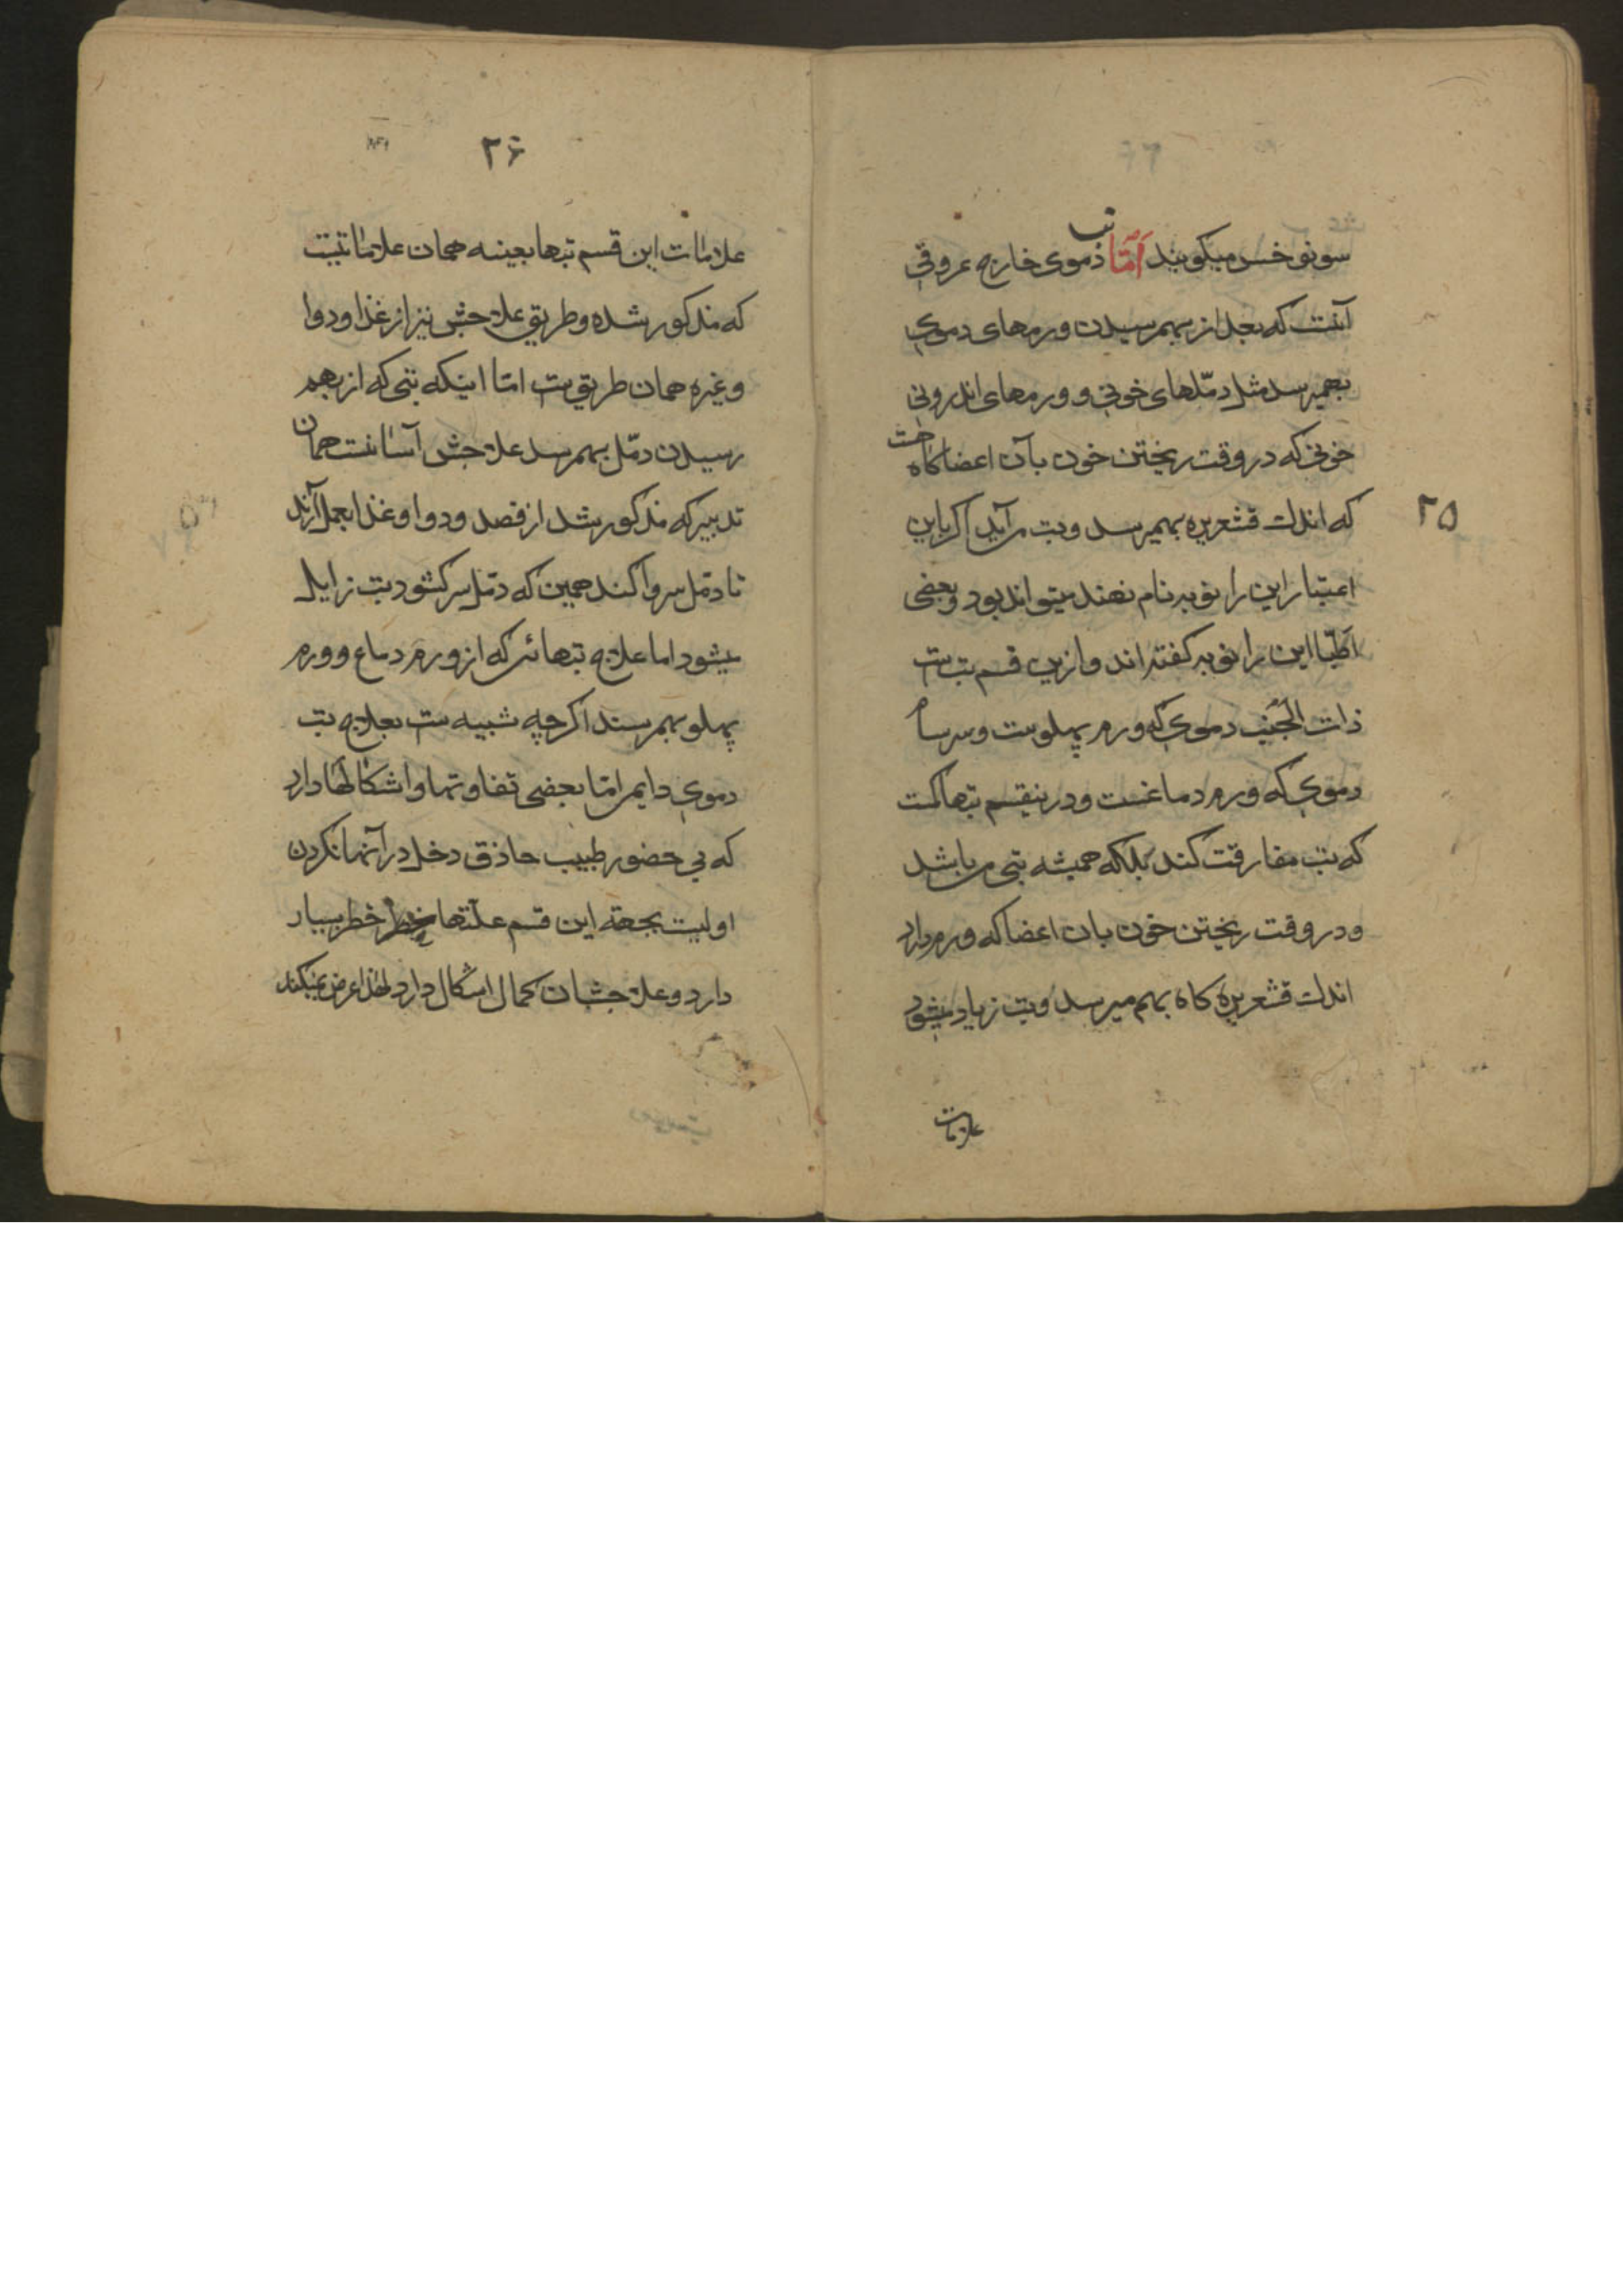 سونوخس میکویند اَمّا تب دموی خارج عروقی
آنست که بعد از بهمرسیدن ورمهای دموی
بهمیرسد مثل دمّلهای خونی و ورمهای اندرونی
خونی که در وقت ریختن خون بآن اعضا کاه هست
که اندک قشعریره بهمیرسد و تب می آید اکر باین
اعتبار این را نوبه نام نهند میتواند بود و بعضی
اطبّا این را نوبه کفته اند و ازین قسم تب ست
ذات الجَنب دموی که ورم پهلوست و سرسام
دموی که ورم دماغست و درینقسم تبها کمست
که تب مفارقت کند بلکه همیشه تب می باشد
و در وقت ریختن خون بان اعضا که ورم دارد
اندک قشعریره کاه بهم میرسد و تب زیاد میشود
علامات
۲۵
۲۶
علامات این قسم تبها بعینه همان علامات تبیست
که مذکور شده و طریق علاجش نیز از غذا و دوا
و غیره همان طریق ست امّا اینکه تبی که از بهم
رسیدن دمّل بهمرسد علاجش آسانست همان
تدبیر که مذکور شد از فصد و دوا و غذا بعمل آرند
تا دمّل سر وا کند همین که دمّل سر کشود تب زایل
میشود اما علاج تبهائی که از ورم دماغ و ورم
پهلو بهمرسند اکرچه شبیه ست بعلاج تب
دموی دایم امّا بعضی تفاوتها و اشکالها دارد
که بی حضور طبیب حاذق دخل در آنها نکردن
اولیست بجهة این قسم علّتها خطر بسیار
دارد و علاجشان کمال اشکال دارد لهذا عرض نمیکند